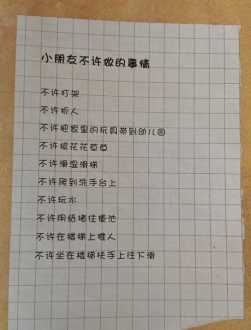 小朋友不许做的事情
不许打架
不许抓人
不许把家里的玩具带到幼儿园
不许摇花花草草
不许滑湿滑梯
不许爬到洗手台上
不许玩水
不许用纸堵住便池
不许在楼梯上推人
不许坐在楼梯扶手上往下滑